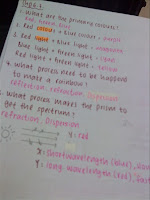 Topic 1.
1. What are the primary colours?
Red, Green, Blue
2. Red colour + Blue light =
3. Red light + Blue light = magenta
Blue light + Green light =
Red light + Green light = Yellow
4. What proses need to be happend
to make a rainbow?
reflection, refraction, Dispersion
5. What proses makes the prism to
get the spectrum?
refraction, Dispersion
Y: red
X = Short wavelength (blue),
Y = long wavelength (red),